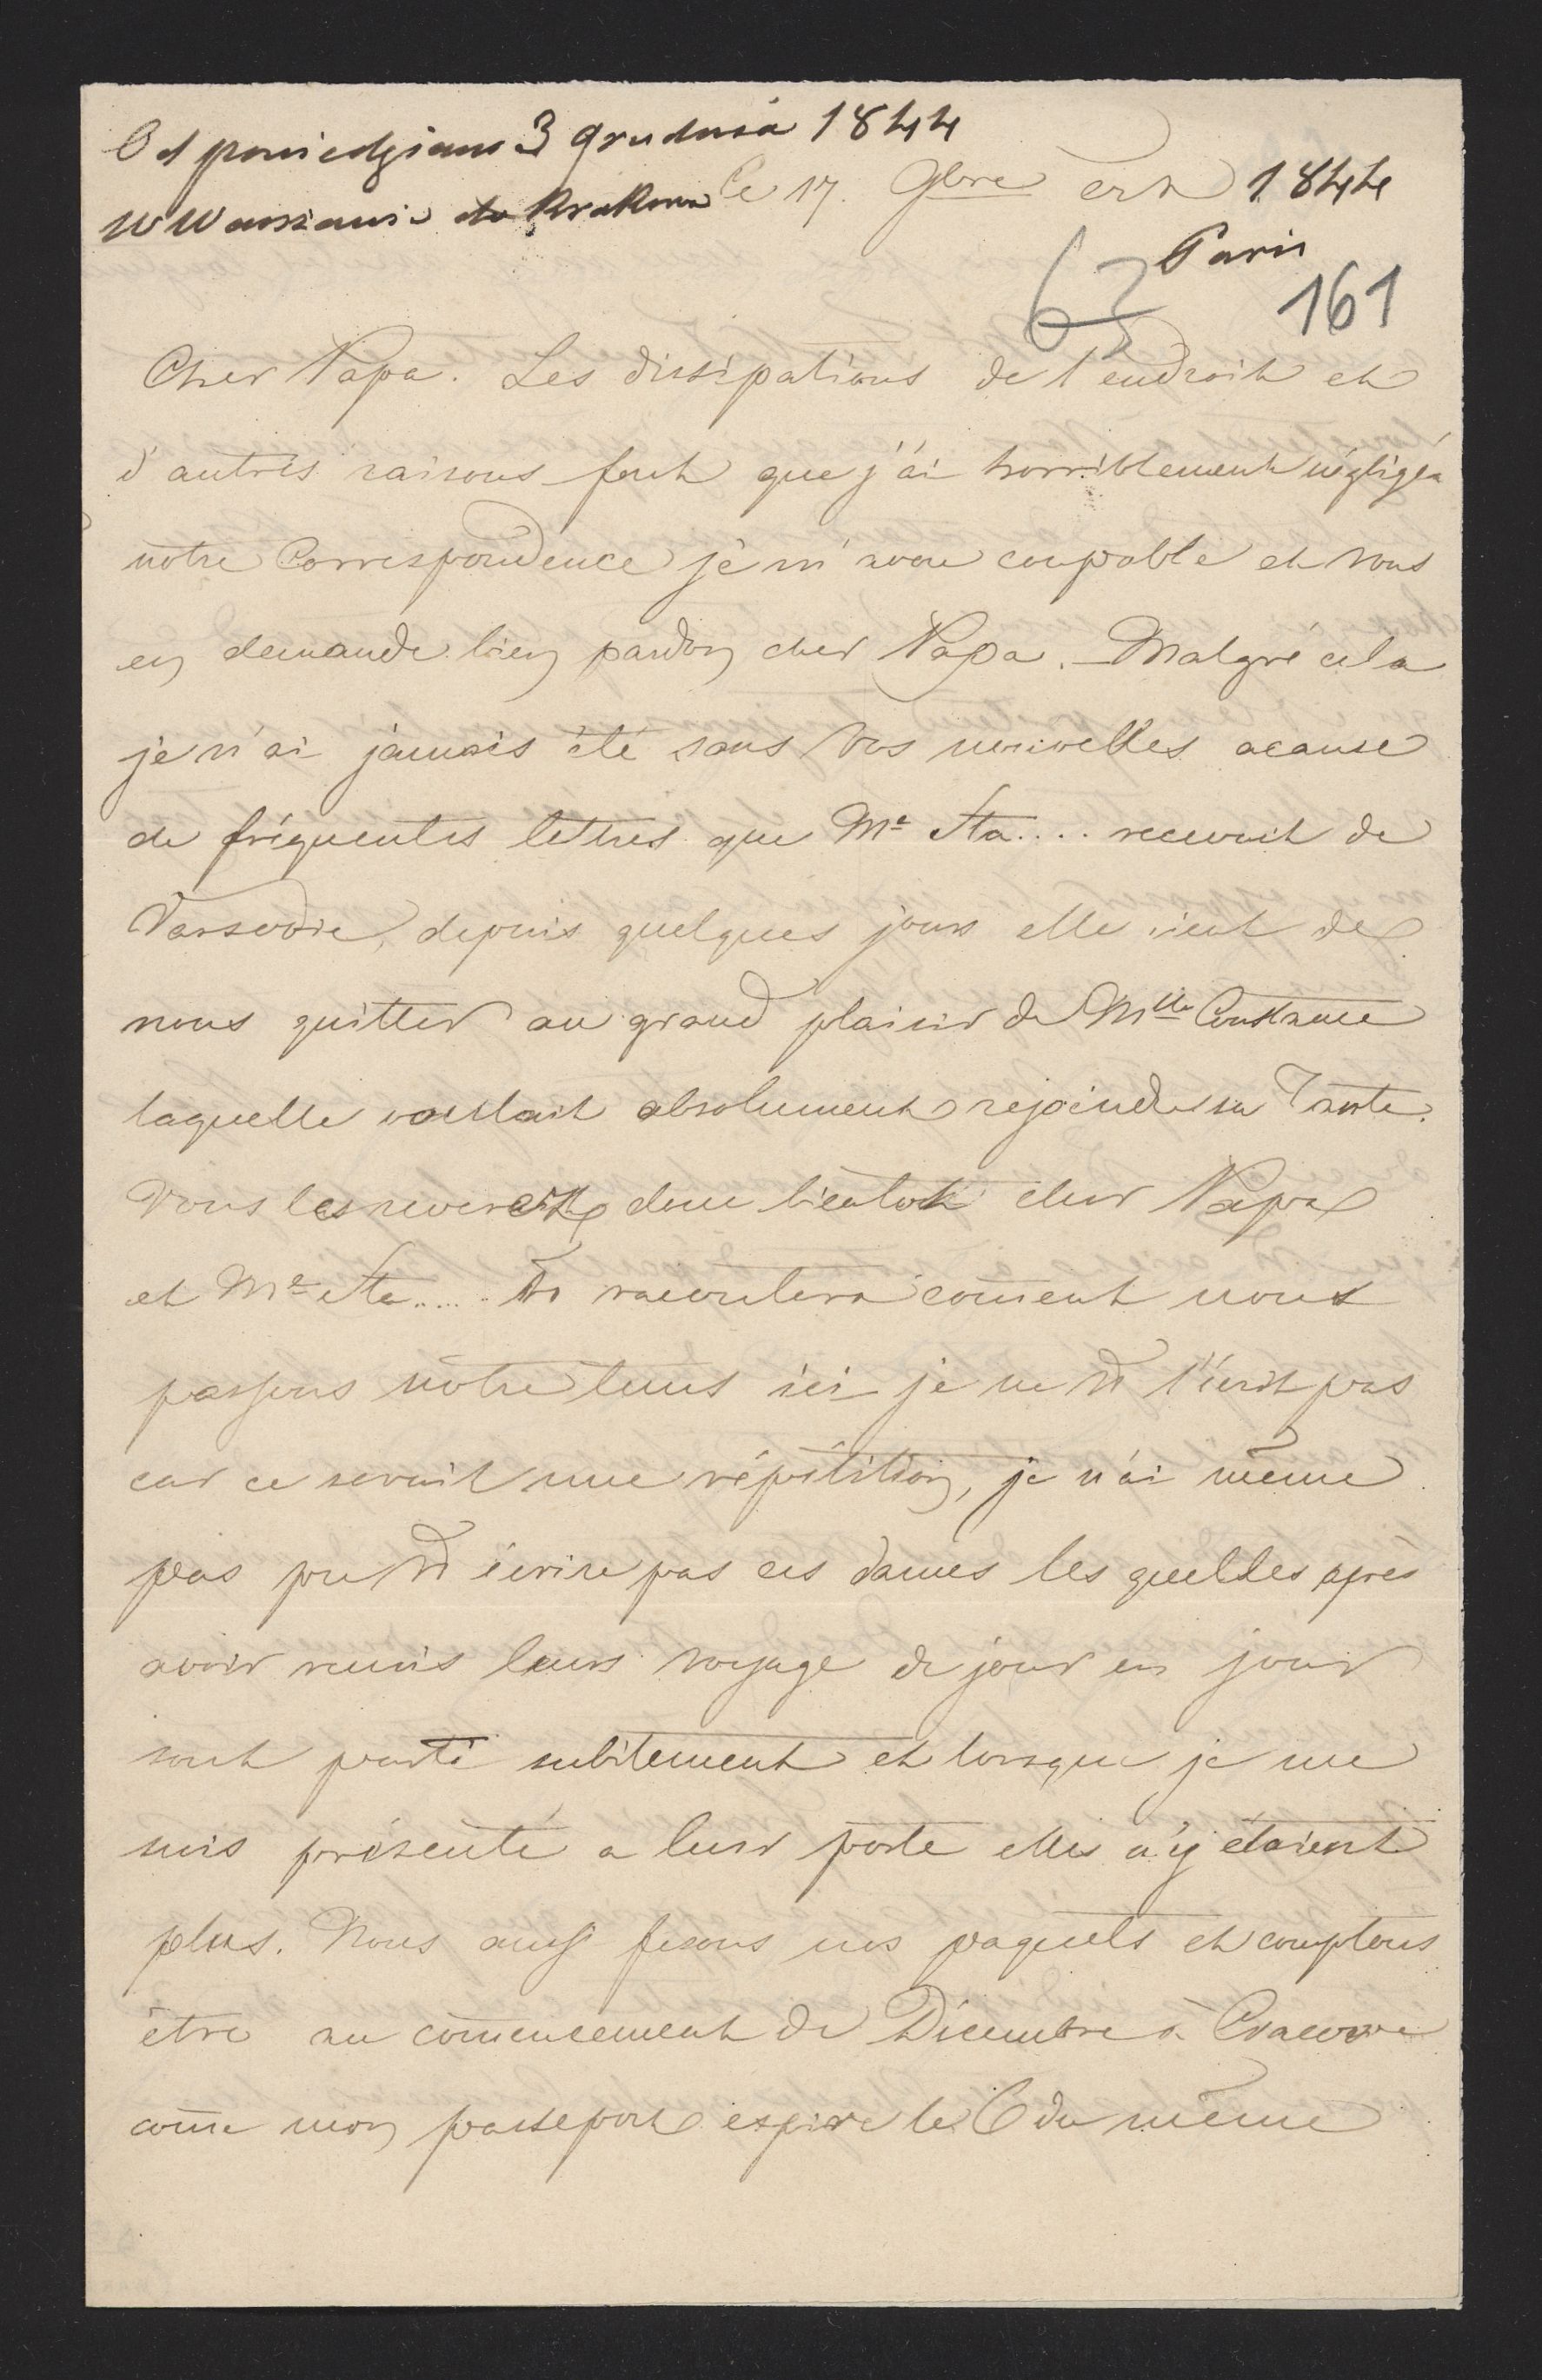 Odpowiedziano 3 grudnia 1844
w Warszawie do Krakowa
le 17. 9bre 1844
Paris
63
161
Cher Papa. Les dissipations de l'endroit et
d'autres raisons font que j'ai horriblement négligé
notre Correspondence je m'avou coupable et vous
en demande bien pardon cher Papa. Malgré cela
je n'ai jamais été sans vos nouvelles acause
de fréquentes lettres que Me Sta.... recevait de
Varsovie, depuis quelques jours elle vient de
nous quitter au grand plaisir de Mlle Constance
laquelle voulait absolument rejoindre sa Tante.
Vous les reverez donc bientot cher Papa
et Me Sta..... Vs racontera coment nous
passons notre tems ici je ne Vs l'écrit pas
car ce serait une répétition, je n'ai même
pas pu Vs écrire pas ces dames les quelles après
avoir remis leurs voyage de jour en jour
sont parté subitement et lorsque je me
suis présenté a leur porte elles n'y étaient
plus. Nous aussi fesons nos paquets et comptons
être au comencement de Décembre à Cracovie
come mon passeport expire le 6 du même